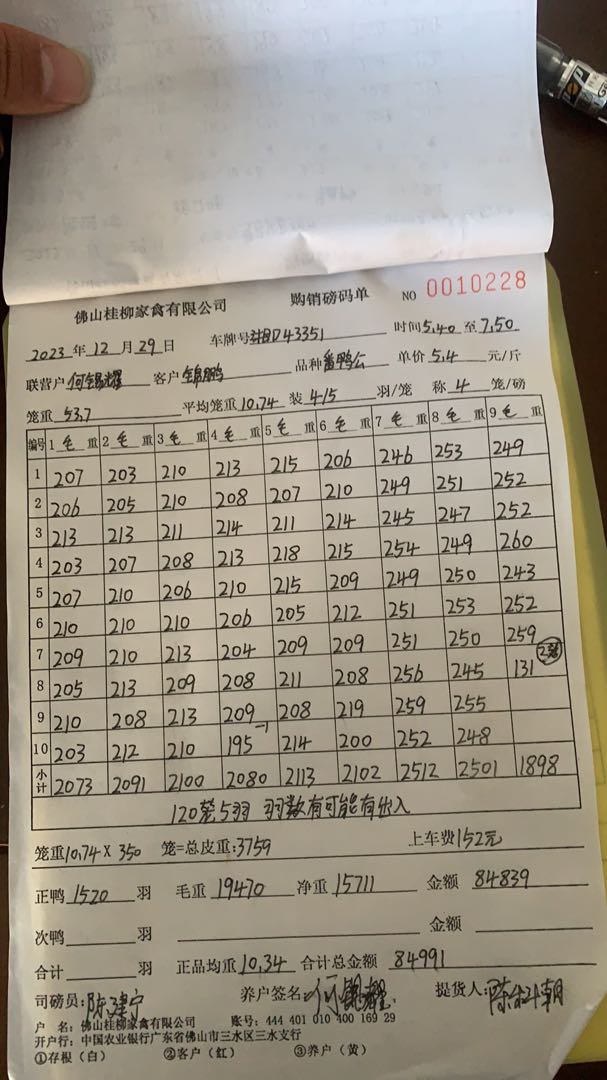 佛山桂柳家禽有限公司 购销磅码单 NO 0010228
2023 年 12 月 29 日 车牌号 D43351 时间 5.40 至 7.50
联营户 何锡耀 客户 锦鹏 品种 番鸭公 单价 5.4 元/斤
笼重 53.7 平均笼重 10.74 装 4/5 羽/笼 称 4 笼/磅
编号 1 毛 重 2 毛 重 3 毛 重 4 毛 重 5 毛 重 6 毛 重 7 毛 重 8 毛 重 9 毛 重
1 207 203 210 213 215 206 246 253 249
2 206 205 210 208 207 210 249 251 252
3 213 213 211 214 211 214 245 247 252
4 203 207 208 213 218 215 254 249 260
5 207 210 206 210 215 209 249 250 243
6 210 210 210 206 205 212 251 253 252
7 209 210 213 204 209 209 251 250 259
8 205 213 209 208 211 208 256 245 131 2笼
9 210 208 213 209 208 219 259 255
10 203 212 210 195 -1 214 200 252 248
小计 2073 2091 2100 2080 2113 2102 2512 2501 1898
120笼5羽 羽数有可能有出入
笼重 10.74 X 350 笼=总皮重:3759 上车费 152元
正鸭 1520 羽 毛重 19470 净重 15711 金额 84839
次鸭 羽 金额
合计 羽 正品均重 10.34 合计总金额 84991
司磅员: 陈建宁 养户签名: 何锡耀 提货人: 陈
户 名: 佛山桂柳家禽有限公司 账号: 444 401 010 400 169 29
开户行: 中国农业银行广东省佛山市三水区三水支行
①存根(白) ②客户(红) ③养户(黄)